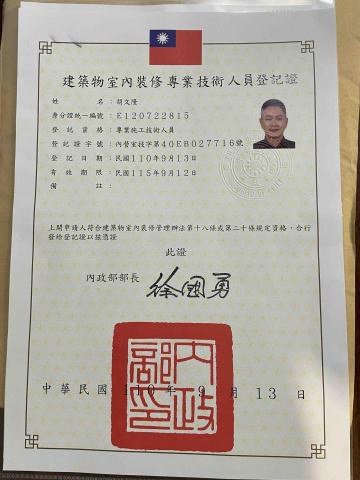 建築物室內裝修專業技術人員登記證
姓名：胡文隆
身分證統一編號：E120722815
登記資格：專業施工技術人員
登記證字號：內營室技字第40EB027716號
登記日期：民國110年9月13日
有效期限：民國115年9月12日
備註：
上開申請人符合建築物室內裝修管理辦法第十八條或第二十條規定資格，合行
發給登記證以茲憑證
此證
內政部部長 徐國勇
內政部印
中華民國110年9月13日